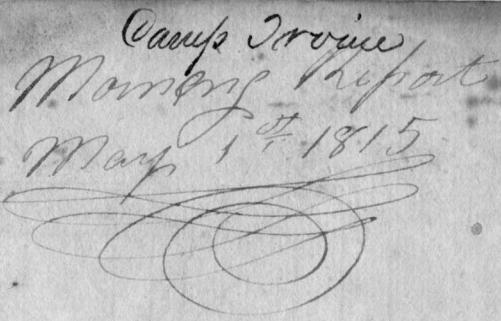 Camp Irvine
Morning Report
May 1st. 1815